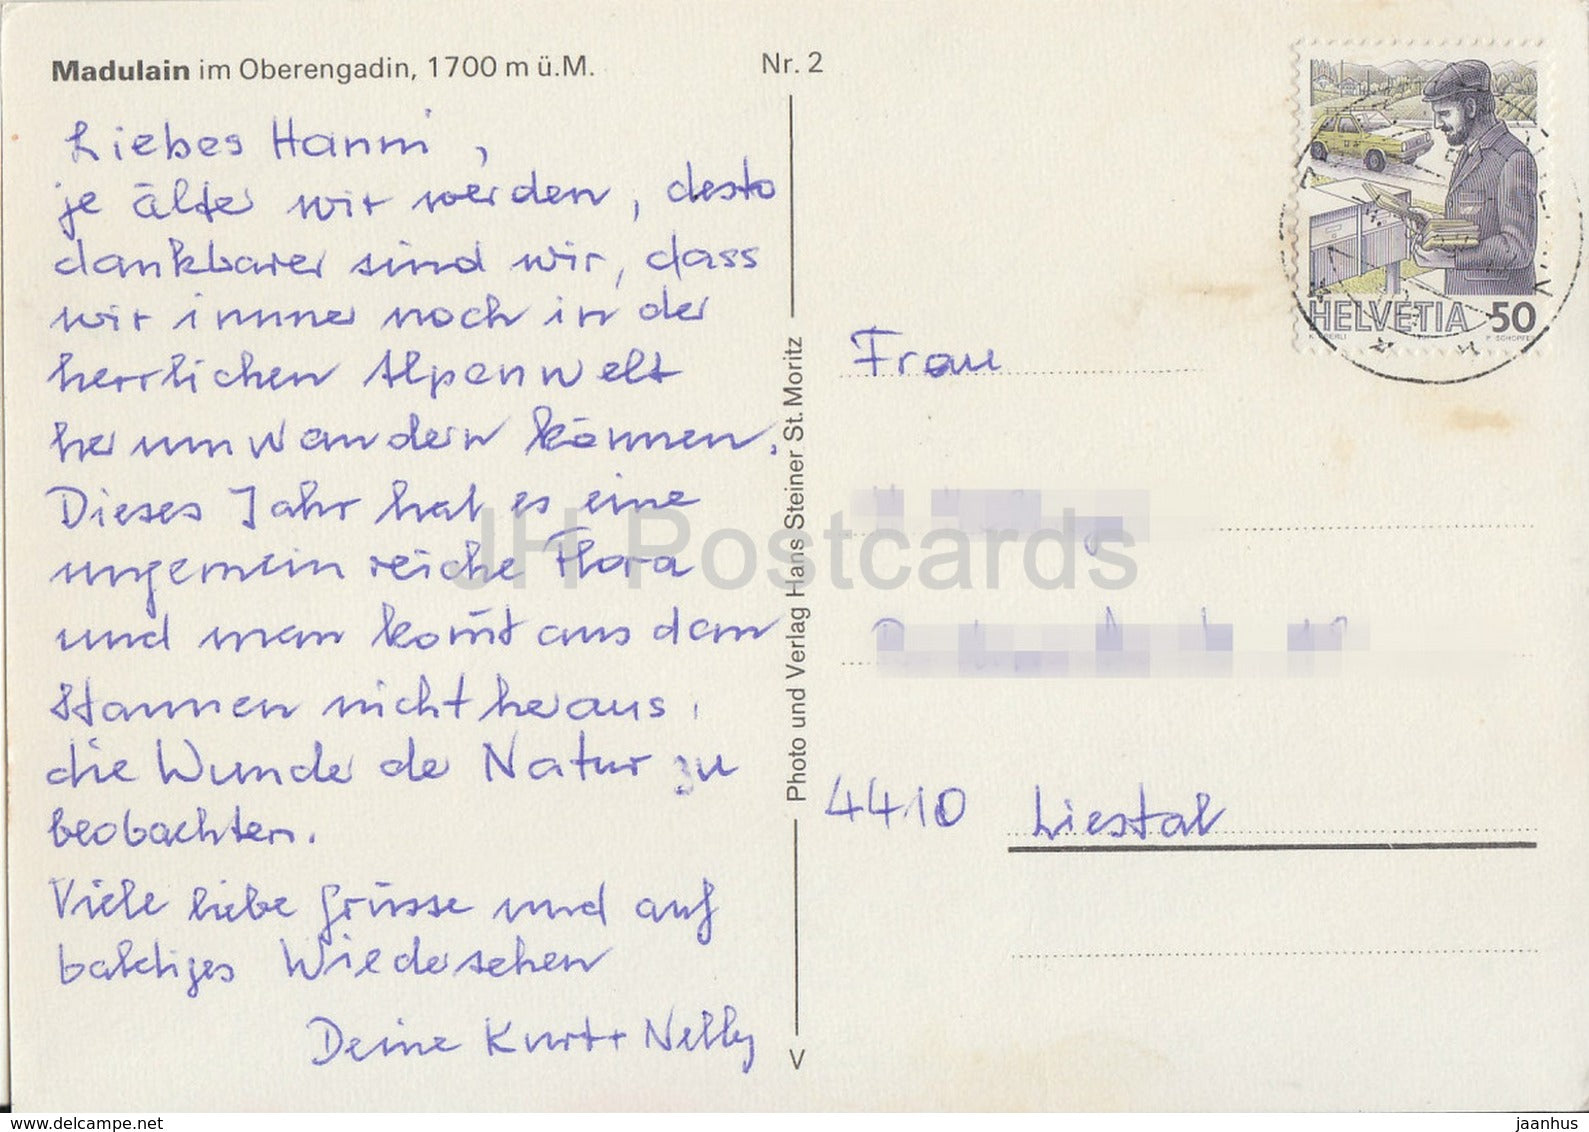 Madulain im Oberengadin, 1700 m ü.M.
Nr. 2
Liebes Hanni,
je älter wir werden, desto
dankbarer sind wir, dass
wir immer noch in der
herrlichen Alpenwelt
herumwandern können.
Dieses Jahr hat es eine
ungemein reiche Flora
und man kom̄t aus dem
Staunen nicht heraus,
die Wunder der Natur zu
beobachten.
Viele liebe Grüsse und auf
baldiges Wiedersehen
Deine Kurt + Nelly
Photo und Verlag Hans Steiner St. Moritz
V
HELVETIA 50
Frau
4410 Liestal
JH Postcards
www.delcampe.net
jaanhus